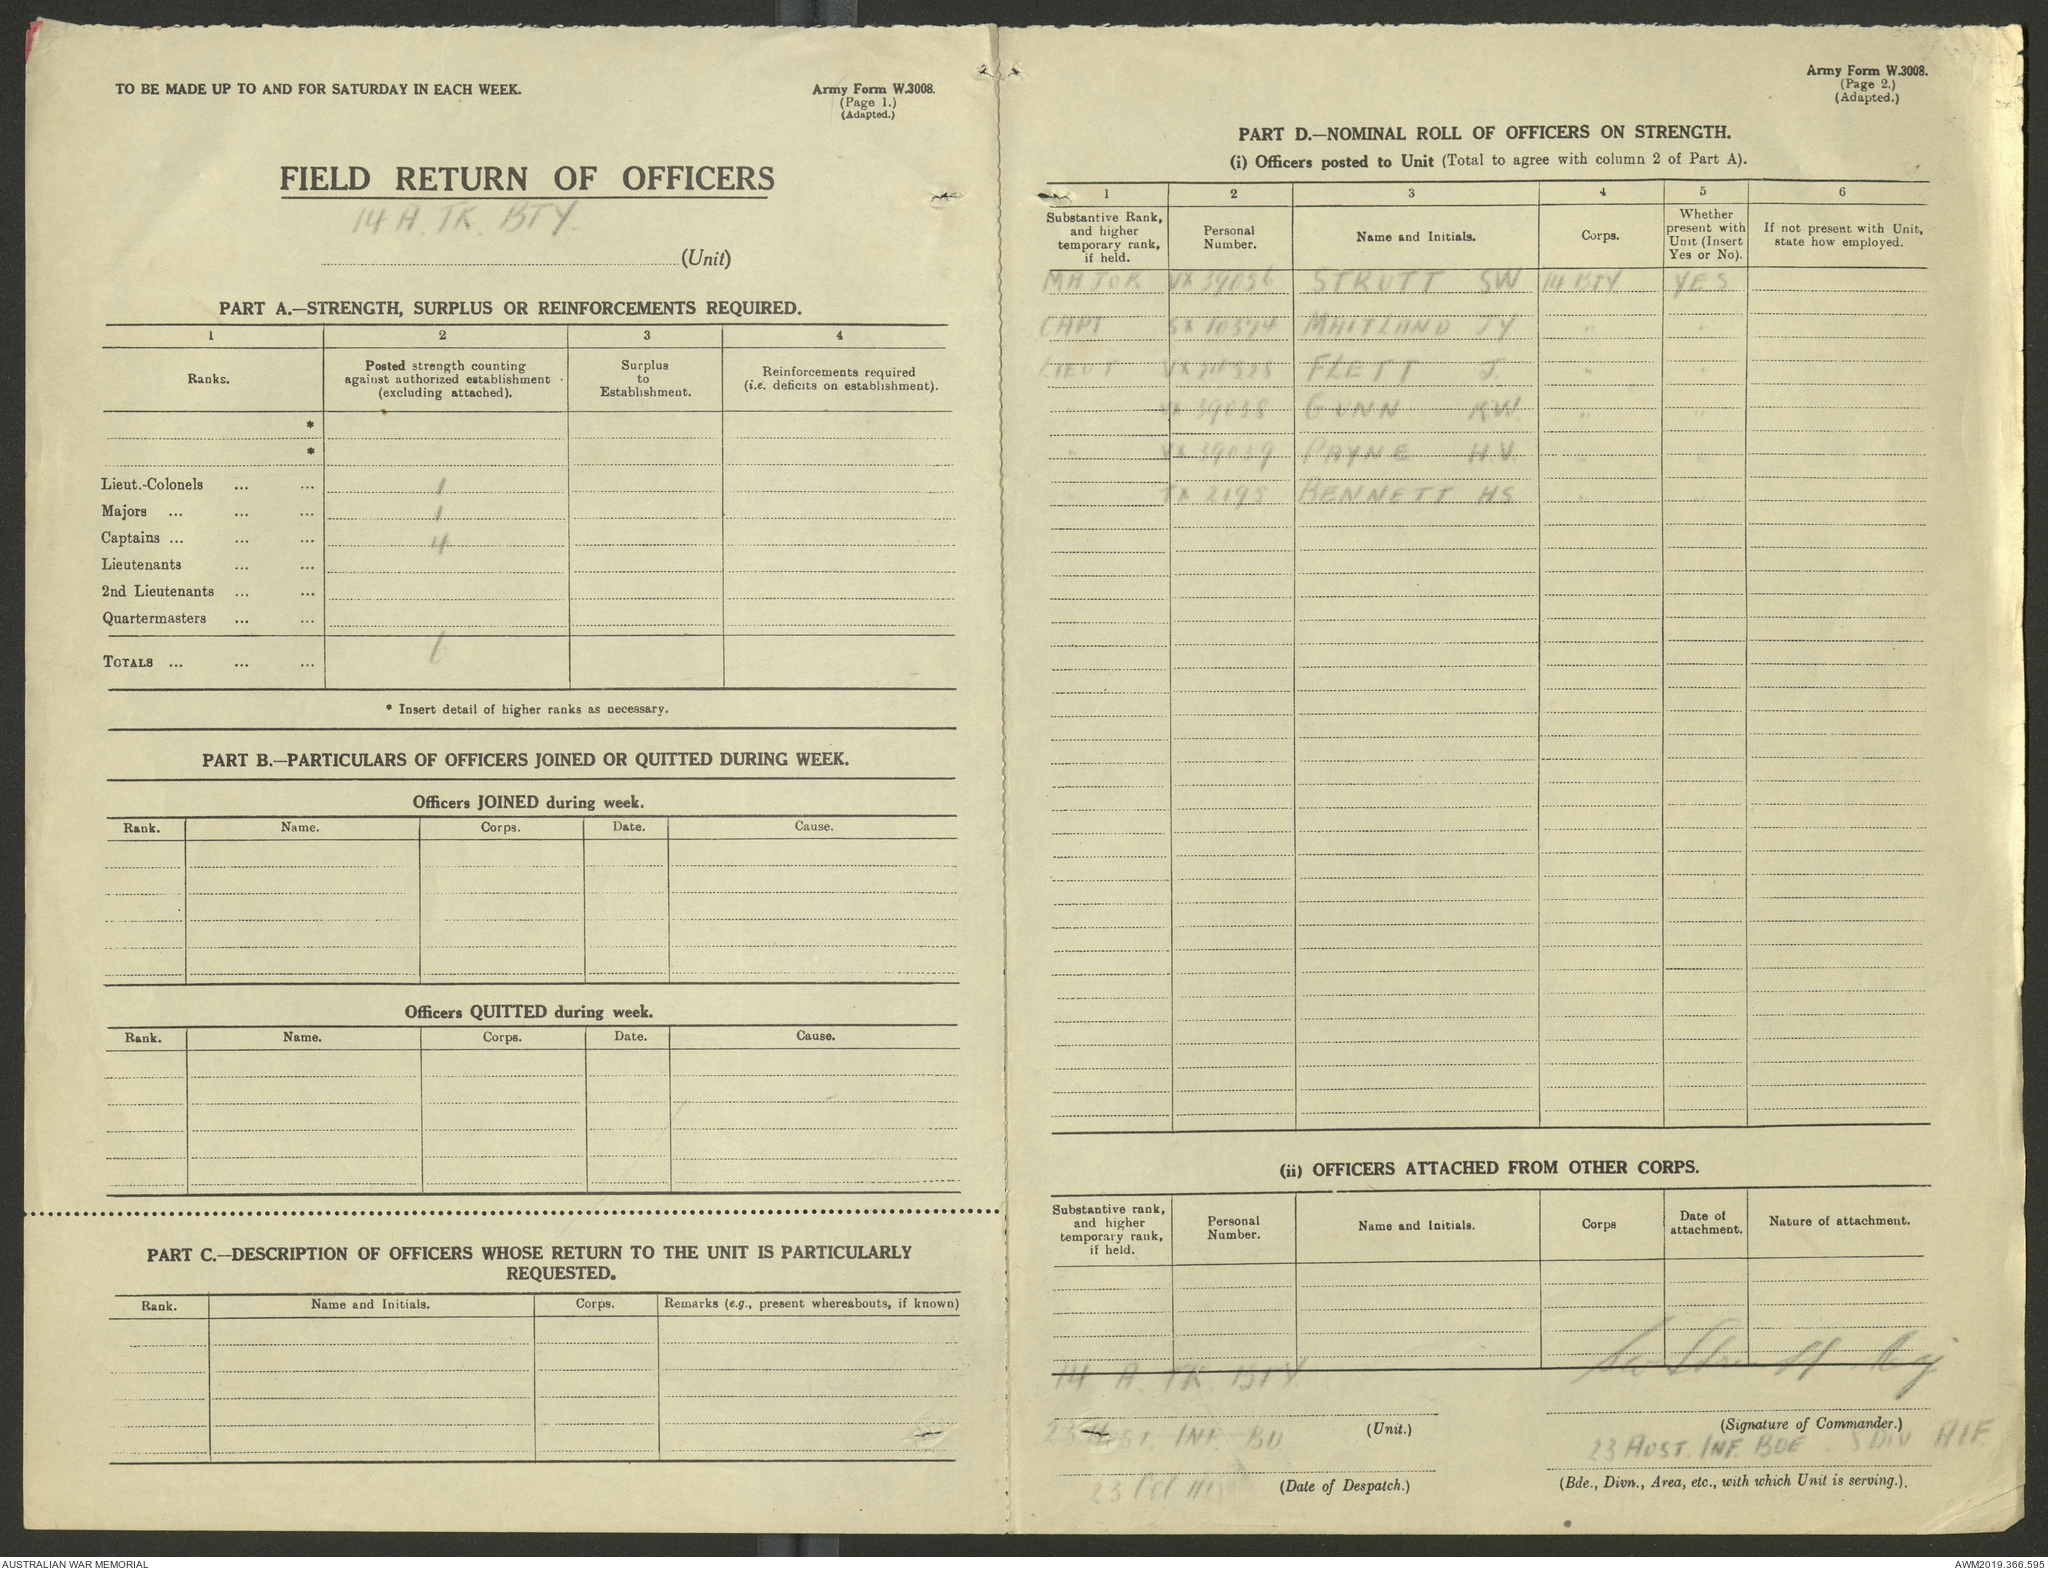 TO BE MADE UP TO AND FOR SATURDAY IN EACH WEEK.
Army Form W.3008.
(Page 1.)
(Adapted.)
FIELD RETURN OF OFFICERS
14 A. TK. BTY.
(Unit)
PART A.—STRENGTH, SURPLUS OR REINFORCEMENTS REQUIRED.
1 2 3 4
Ranks. Posted strength counting against authorized establishment (excluding attached). Surplus to Establishment. Reinforcements required (i.e. deficits on establishment).
*
*
Lieut.-Colonels ... ... 1
Majors ... ... ... 1
Captains ... ... ... 4
Lieutenants ... ...
2nd Lieutenants ... ...
Quartermasters ... ...
TOTALS ... ... ... 6
* Insert detail of higher ranks as necessary.
PART B.—PARTICULARS OF OFFICERS JOINED OR QUITTED DURING WEEK.
Officers JOINED during week.
Rank. Name. Corps. Date. Cause.
Officers QUITTED during week.
Rank. Name. Corps. Date. Cause.
PART C.—DESCRIPTION OF OFFICERS WHOSE RETURN TO THE UNIT IS PARTICULARLY
REQUESTED.
Rank. Name and Initials. Corps. Remarks (e.g., present whereabouts, if known)
Army Form W.3008.
(Page 2.)
(Adapted.)
PART D.—NOMINAL ROLL OF OFFICERS ON STRENGTH.
(i) Officers posted to Unit (Total to agree with column 2 of Part A).
1 2 3 4 5 6
Substantive Rank, and higher temporary rank, if held. Personal Number. Name and Initials. Corps. Whether present with Unit (Insert Yes or No). If not present with Unit, state how employed.
MAJOR VX 39056 STRUTT SW 14 BTY YES
CAPT SX 10374 MAITLAND JY " "
LIEUT VX 24325 FLETT J. " "
" VX 39038 GUNN K.W. " "
" VX 39039 PAYNE H.V. " "
" TX 2195 BENNETT HS " "
(ii) OFFICERS ATTACHED FROM OTHER CORPS.
Substantive rank, and higher temporary rank, if held. Personal Number. Name and Initials. Corps Date of attachment. Nature of attachment.
14 A. TK. BTY.
SW Strutt Maj
(Unit.)
(Signature of Commander.)
INF. BD
23 AUST. INF. BDE. DIV AIF
23
(Date of Despatch.)
(Bde., Divn., Area, etc., with which Unit is serving.).
AUSTRALIAN WAR MEMORIAL
AWM2019.366.595